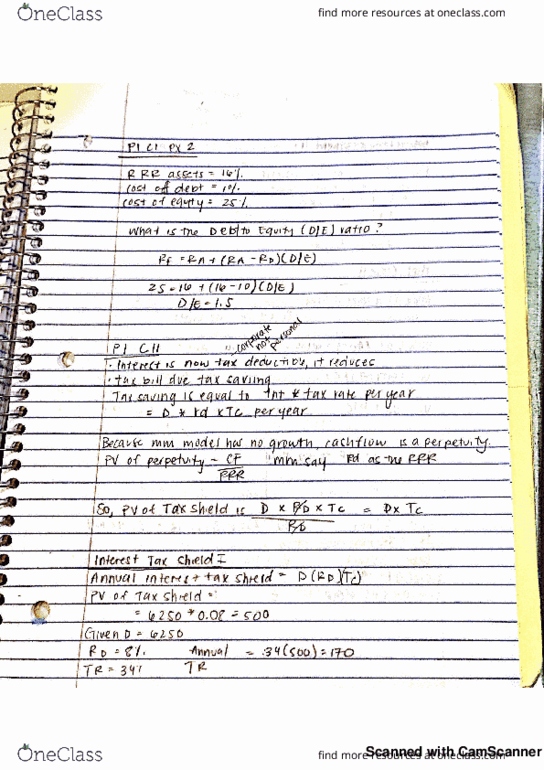 OneClass find more resources at oneclass.com
PI CI PX 2
RRR assets = 16%
cost off debt = 10%
cost of equity = 25%
What is the Debt to Equity (D/E) ratio?
RE = RA + (RA - RD)(D/E)
25 = 16 + (16 - 10)(D/E)
D/E = 1.5
corporate
not
personal
PI CII
· Interest is now tax deduction, it reduces
· tax bill due tax saving
Tax saving is equal to Int * tax rate per year
= D * rd x Tc per year
Because mm model has no growth, cashflow is a perpetuity.
PV of perpetuity = CF mm say Rd as the RRR
RRR
So, PV of Tax shield is D x RD x Tc = D x Tc
RD
Interest Tax Shield I
Annual interest tax shield = D(RD)(Tc)
PV of Tax shield =
= 6250 * 0.08 = 500
Given D = 6250
RD = 8% Annual = .34(500) = 170
TR = 34% TR
Scanned with CamScanner
OneClass find more resources at oneclass.com